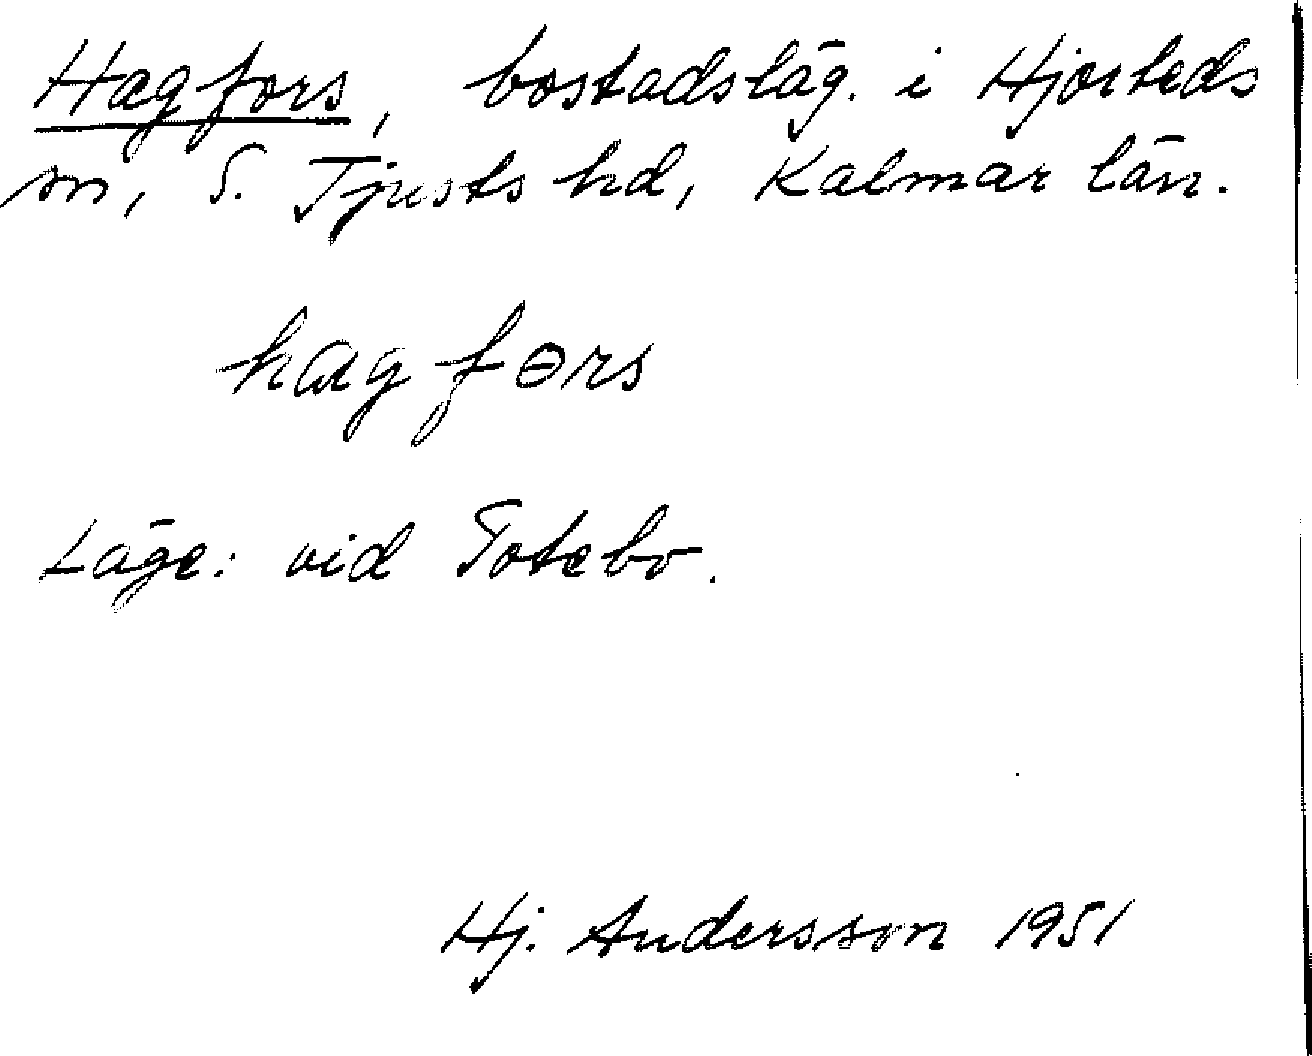 Hagfors, bostadsläg. i Hjorteds
sn, S. Tjusts hd, Kalmar län.
hagfɵrs
Läge: vid Totebo.
Hj. Andersson 1951